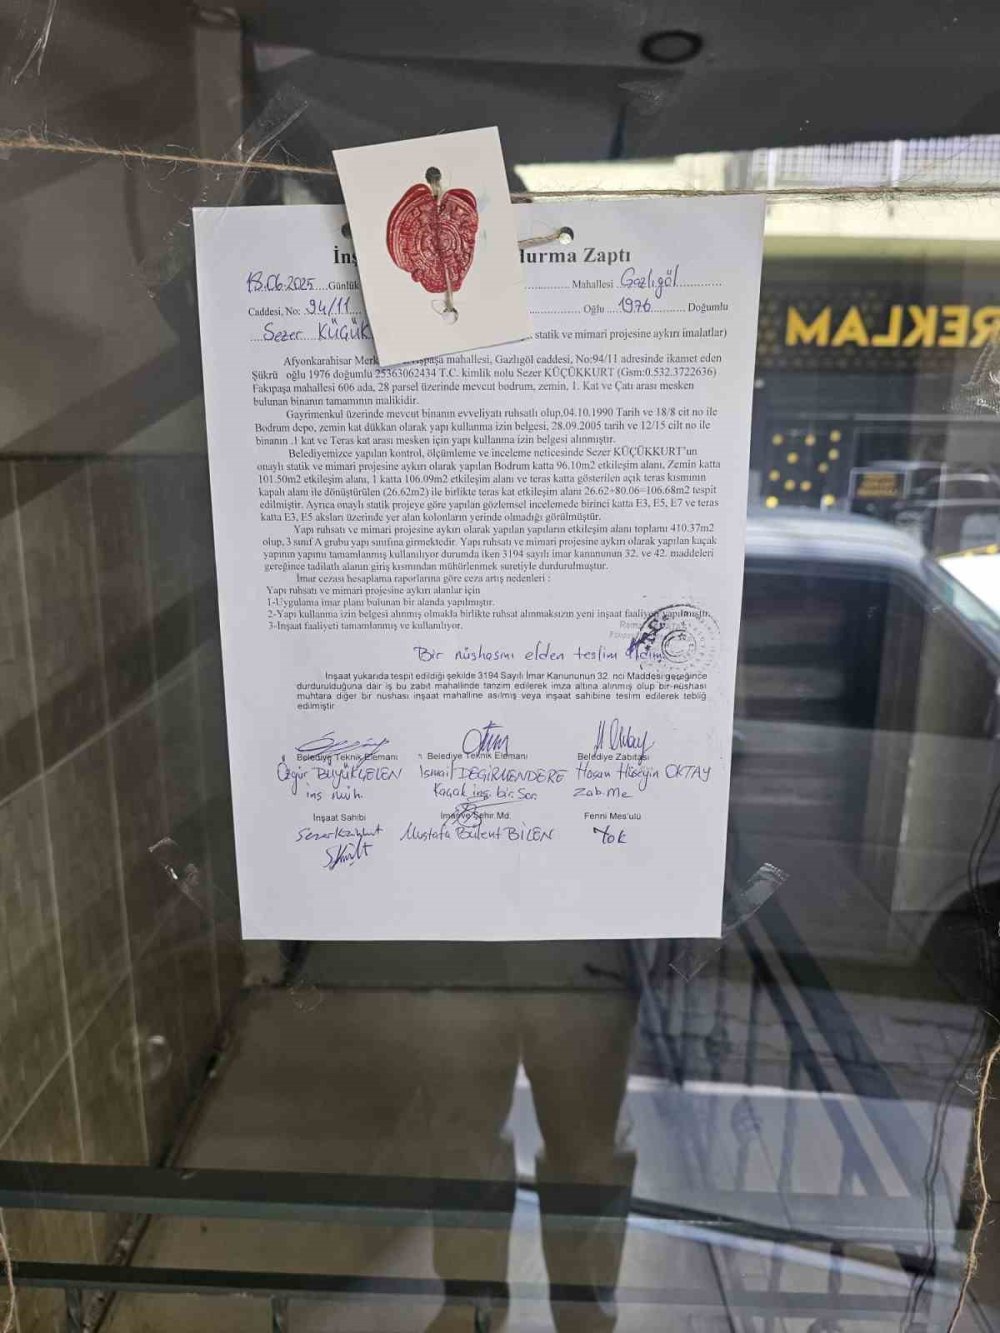 İnş durma Zaptı
18.06.2025 ....Günlük Mahallesi Gazlıgöl
Caddesi, No: 94/11 Oğlu 1976 Doğumlu
Sezer KÜÇÜK statik ve mimari projesine aykırı imalatlar)
Afyonkarahisar Merk paşa mahallesi, Gazlıgöl caddesi, No:94/11 adresinde ikamet eden
Şükrü oğlu 1976 doğumlu 25363062434 T.C. kimlik nolu Sezer KÜÇÜKKURT (Gsm:0.532.3722636)
Fakıpaşa mahallesi 606 ada, 28 parsel üzerinde mevcut bodrum, zemin, 1. Kat ve Çatı arası mesken
bulunan binanın tamamının malikidir.
Gayrimenkul üzerinde mevcut binanın evveliyatı ruhsatlı olup,04.10.1990 Tarih ve 18/8 cit no ile
Bodrum depo, zemin kat dükkan olarak yapı kullanma izin belgesi, 28.09.2005 tarih ve 12/15 cilt no ile
binanın .1 kat ve Teras kat arası mesken için yapı kullanma izin belgesi alınmıştır.
Belediyemizce yapılan kontrol, ölçümleme ve inceleme neticesinde Sezer KÜÇÜKKURT'un
onaylı statik ve mimari projesine aykırı olarak yapılan Bodrum katta 96.10m2 etkileşim alanı, Zemin katta
101.50m2 etkileşim alanı, 1 katta 106.09m2 etkileşim alanı ve teras katta gösterilen açık teras kısmının
kapalı alanı ile dönüştürülen (26.62m2) ile birlikte teras kat etkileşim alanı 26.62+80.06=106.68m2 tespit
edilmiştir. Ayrıca onaylı statik projeye göre yapılan gözlemsel incelemede birinci katta E3, E5, E7 ve teras
katta E3, E5 aksları üzerinde yer alan kolonların yerinde olmadığı görülmüştür.
Yapı ruhsatı ve mimari projesine aykırı olarak yapılan yapıların etkileşim alanı toplamı 410.37m2
olup, 3 sınıf A grubu yapı sınıfına girmektedir. Yapı ruhsatı ve mimari projesine aykırı olarak yapılan kaçak
yapının yapımı tamamlanmış kullanılıyor durumda iken 3194 sayılı imar kanununun 32. ve 42. maddeleri
gereğince tadilatlı alanın giriş kısmından mühürlenmek suretiyle durdurulmuştur.
İmar cezası hesaplama raporlarına göre ceza artış nedenleri :
Yapı ruhsatı ve mimari projesine aykırı alanlar için
1-Uygulama imar planı bulunan bir alanda yapılmıştır.
2-Yapı kullanma izin belgesi alınmış olmakla birlikte ruhsat alınmaksızın yeni inşaat faaliyeti yapılmıştır,
3-İnşaat faaliyeti tamamlanmış ve kullanılıyor.
Bir nüshasını elden teslim aldım
İnşaat yukarıda tespit edildiği şekilde 3194 Sayılı İmar Kanununun 32. nci Maddesi gereğince
durdurulduğuna dair iş bu zabıt mahallinde tanzim edilerek imza altına alınmış olup bir nüshası
muhtara diğer bir nüshası inşaat mahalline asılmış veya inşaat sahibine teslim edilerek tebliğ
edilmiştir
Belediye Teknik Elemanı Belediye Teknik Elemanı Belediye Zabıtası
Özgür BÜYÜKÇELEN İsmail DEĞİRMENDERE Hasan Hüseyin OKTAY
inş müh. Kaçak inş. bir. Sor. Zab. Me
İnşaat Sahibi İmar ve Şehir Md. Fenni Mes'ulü
Mustafa Bülent BİLEN Yok
REKLAM